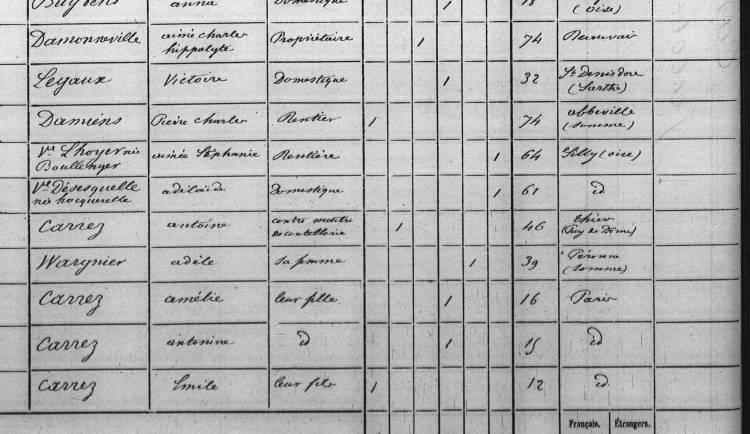 Buydens anna Domestique 1 18 (Oise)
Damonneville aimé charles hippolyte Propriétaire 1 74 Beauvais
Leyaux Victoire Domestique 1 32 St Denis d'ore (Sarthe)
Damiens Pierre charles Rentier 1 74 abbeville (Somme)
Ve Lhoyer née Boullenger aimée Stéphanie Rentière 1 64 Silly (oise)
Ve Désesquelle née hocquerelle adélaïde Domestique 1 61 id
Carrez antoine contre maitre de coutellerie 1 46 Thiers (Puy de Dôme)
Wargnier adèle sa femme 1 39 Péronne (Somme)
Carrez amélie leur fille 1 16 Paris
Carrez antonine id 1 15 id
Carrez Emile leur fils 1 12 id
Français. Étrangers.